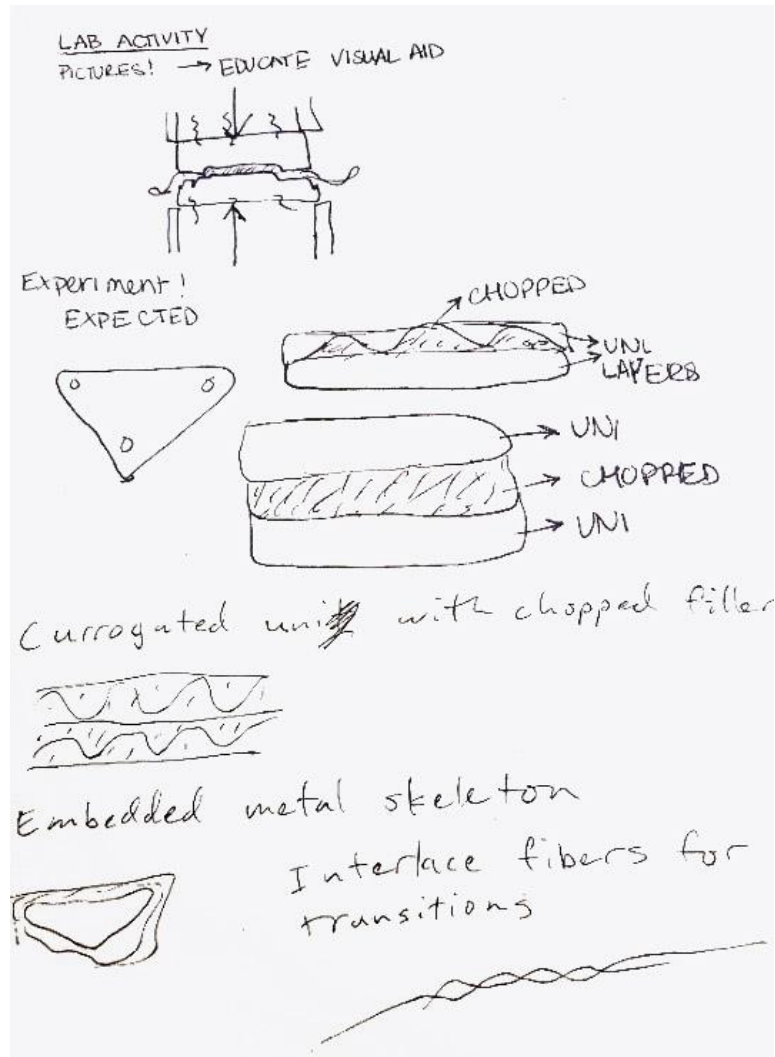 LAB ACTIVITY
PICTURES! → EDUCATE VISUAL AID
Experiment!
EXPECTED
CHOPPED
UNI
LAYERS
UNI
CHOPPED
UNI
Currogated uni with chopped filler
Embedded metal skeleton
Interlace fibers for
transitions